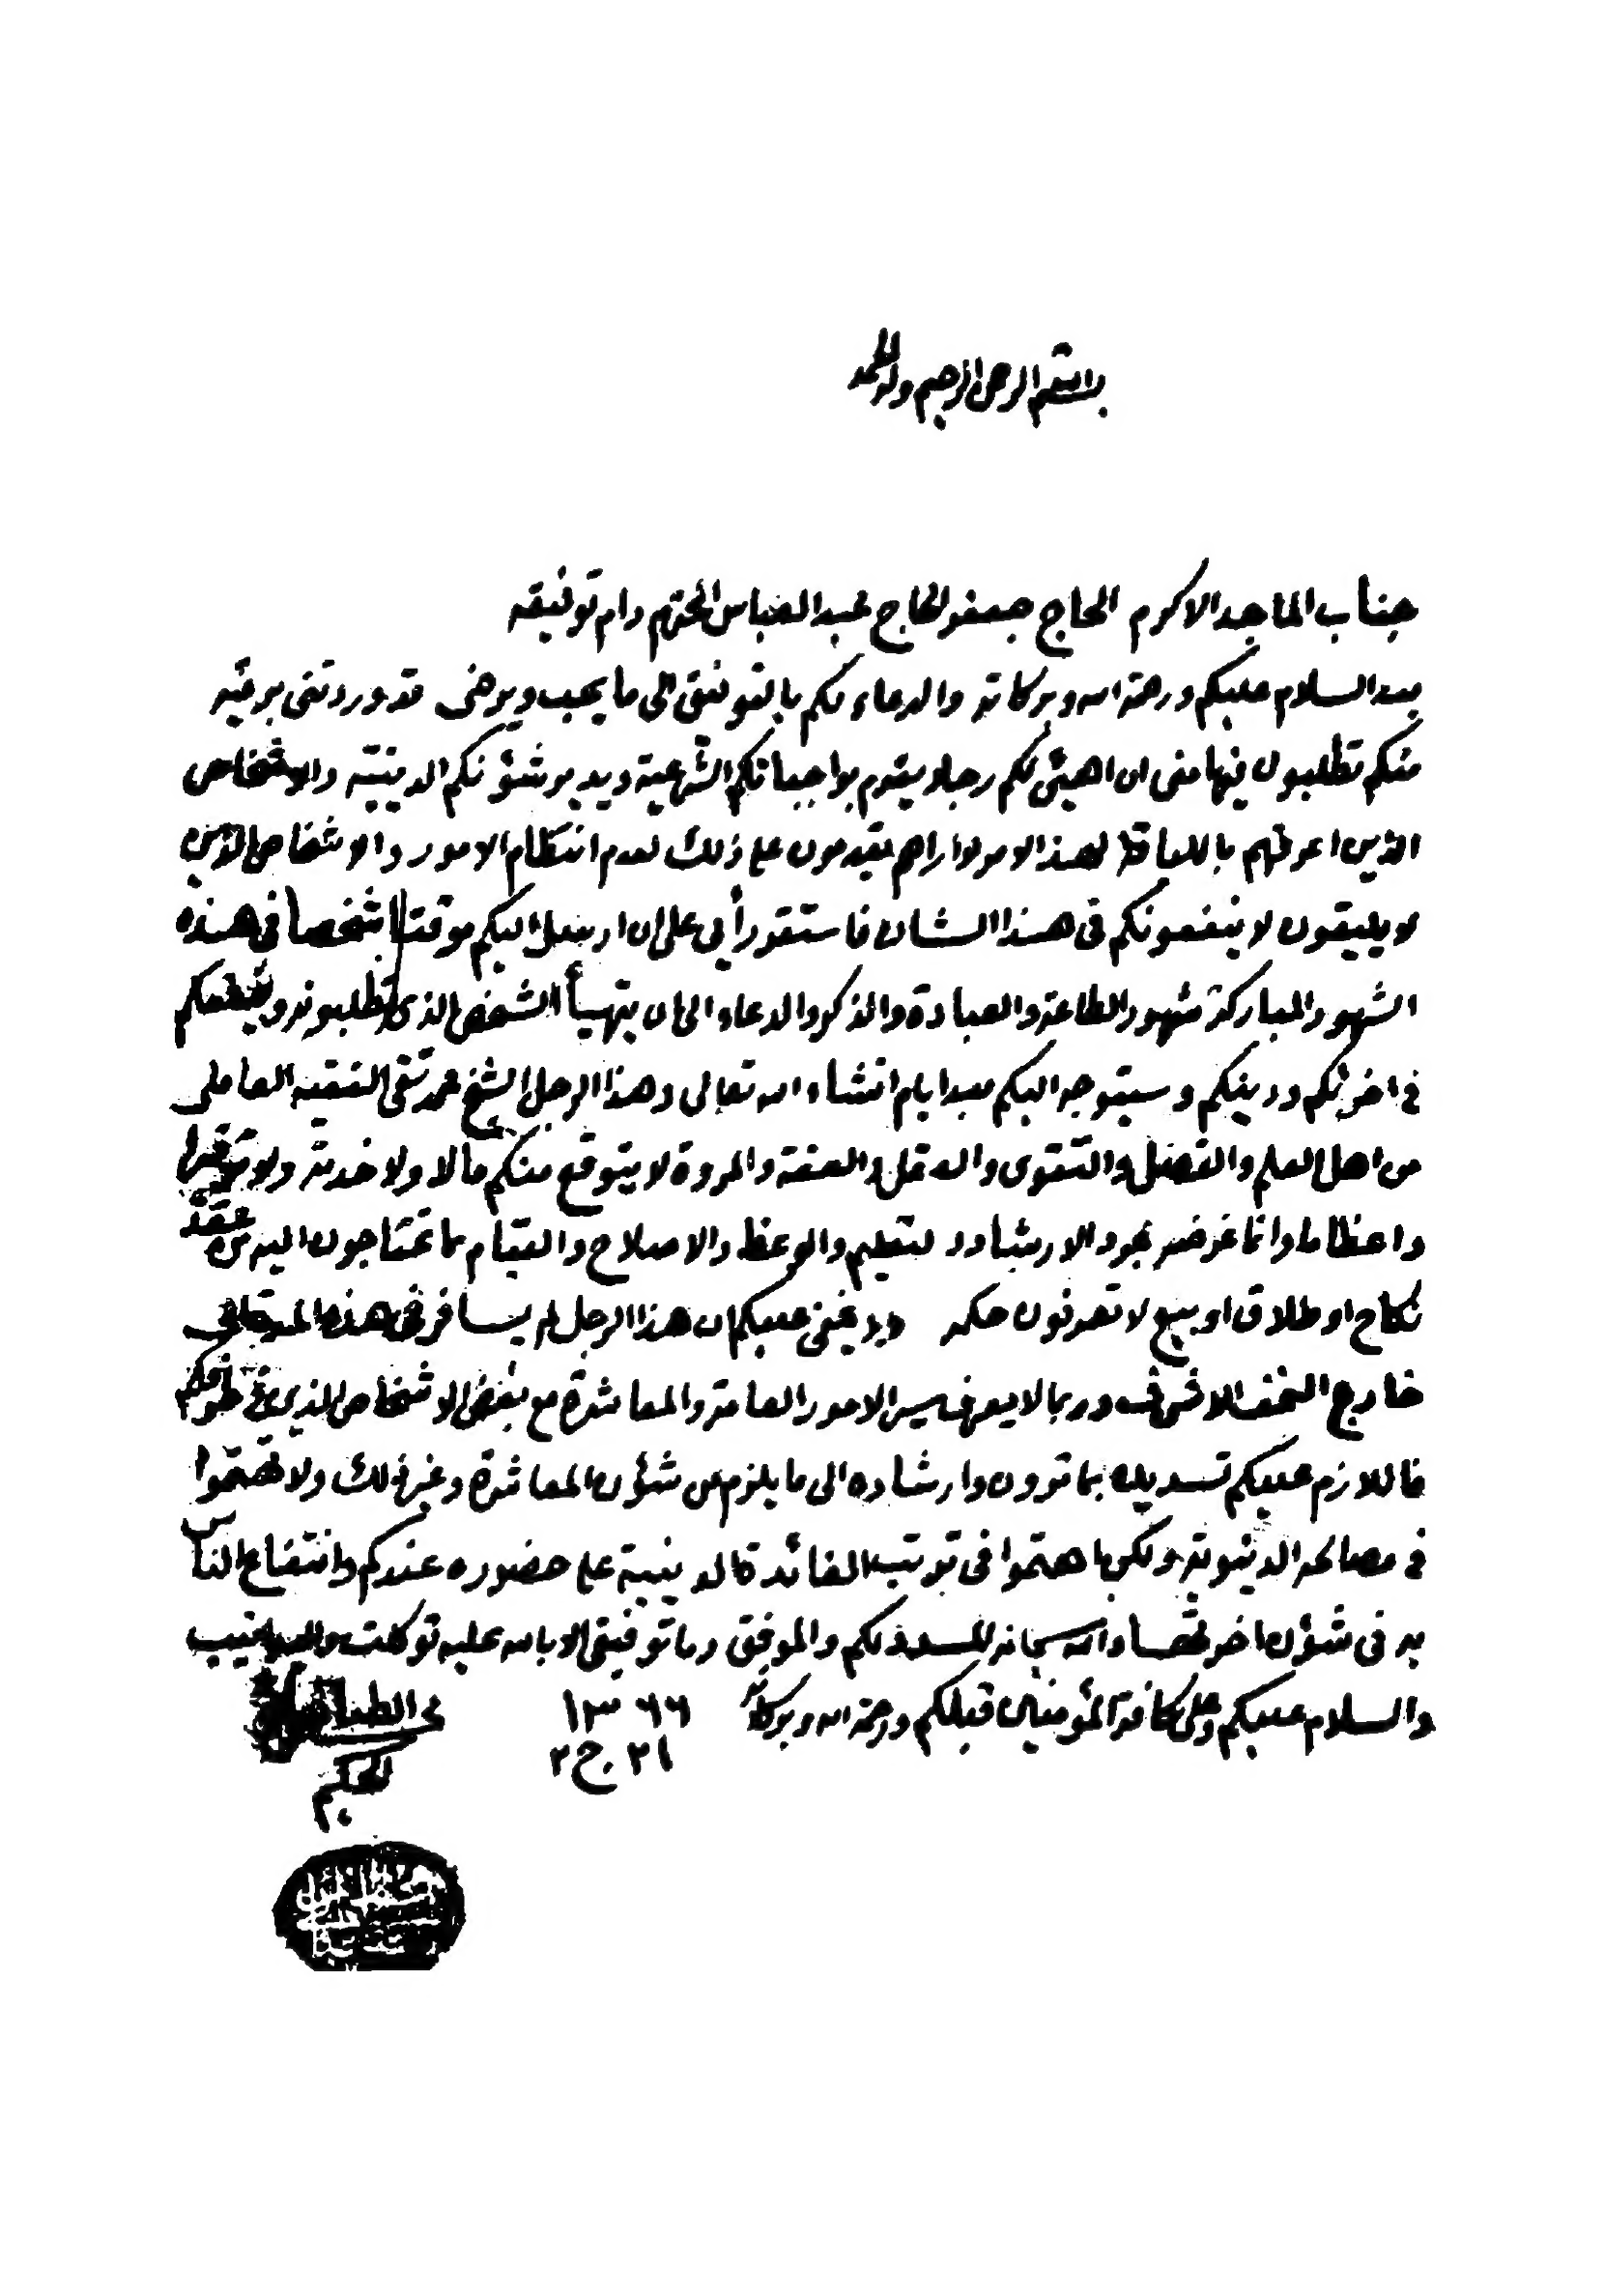 بسم الله الرحمن الرحيم وله الحمد
جناب الماجد الاكرم الحاج جعفر الحاج عبد العباس المحترم دام توفيقه
بعد السلام عليكم ورحمة الله وبركاته والدعاء لكم بالتوفيق الى ما يحب ويرضى قد وردتني برقية
منكم تطلبون فيها مني ان اهيئ لكم رجلا يقوم بواجباتكم الشرعية ويدير شؤنكم الدينية والاشخاص
الذين اعرفهم باللياقة لهذا الامر لا اراهم يقدمون على ذلك لعدم انتظام الامور والاشخاص الذين
لا يليقون لا ينفعونكم في هذا الشان فاستقر رأيي على ان ارسل اليكم موقتا شخصا في هذه
الشهور المباركة شهور الطاعة والعبادة والذكر والدعاء الى ان يتهيأ الشخص الذي تطلبونه وينفعكم
في اخرتكم ودينكم وسيتوجه اليكم بعد ايام انشاء الله تعالى وهذا الرجل الشيخ محمد تقي الفقيه العاملي
من اهل العلم والفضل والتقوى والعقل والعفة والمروة لا يتوقع منكم مالا ولا خدمة ولا توقيرا
واعظاما وانما غرضه مجرد الارشاد والتعليم والوعظ والاصلاح والقيام بما تحتاجون اليه من عقد
نكاح او طلاق او بيع لا تعرفون حكمه ولا يخفى عليكم ان هذا الرجل لم يسافر في هذه المدة الى
خارج النجف الاشرف وربما لا يعرف سير الامور العامة والمعاشرة مع بعض الاشخاص الذين في طرفكم
فاللازم عليكم تسديده بما ترون وارشاده الى ما يلزم من شؤن المعاشرة وغير ذلك ولا تهتموا
في مصالحه الدنيوية ولكن اهتموا في ترتب الفائدة الدينية على حضوره عندكم وانتفاع الناس
به في شؤن اخرتهم والله سبحانه المسدد لكم والموفق وما توفيقي الا بالله عليه توكلت واليه انيب
والسلام عليكم وعلى كافة المؤمنين قبلكم ورحمة الله وبركاته ١٣٦٦ الطباطبائي
٢١ ج ٢ الحكيم